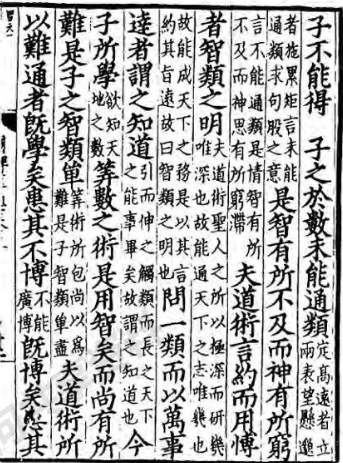 子不能得　子之於數未能通類定高遠者立兩表望懸邈
者施累矩言未能通類求句股之意是智有所不及而神有所窮
言不能通類是情智有所不及而神思有所窮滯夫道術言約而用博
者智類之明夫道術聖人之所以極深而研幾唯深也故能通天下之志唯幾也
故能成天下之務是以其言約其旨遠故曰智類之明也問一類而以萬事
達者謂之知道引而伸之觸類而長之天下之能事畢矣故謂之知道也今
子所學欲知天地之數筭數之術是用智矣而尚有所
難是子之智類單筭術所包尚以為難是子智類單盡夫道術所
以難通者既學矣患其不博不能廣博既博矣患其